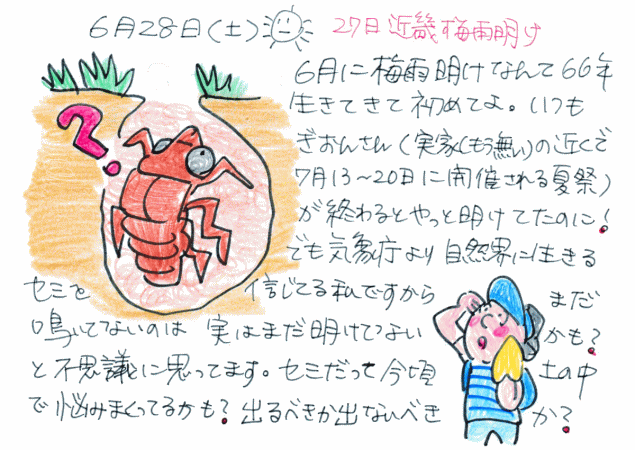 6月28日(土) 27日近畿梅雨明け
6月に梅雨明けなんて66年
生きてきて初めてよ。いつも
ぎおんさん(実家(もう無い)の近くで
7月13〜20日に開催される夏祭)
が終わるとやっと明けてたのに!
?
でも気象庁より自然界に生きる
セミを信じてる私ですからまだ
鳴いてないのは実はまだ明けてないかも?
と不思議に思ってます。セミだって今頃土の中
で悩みまくってるかも?出るべきか出ないべきか?